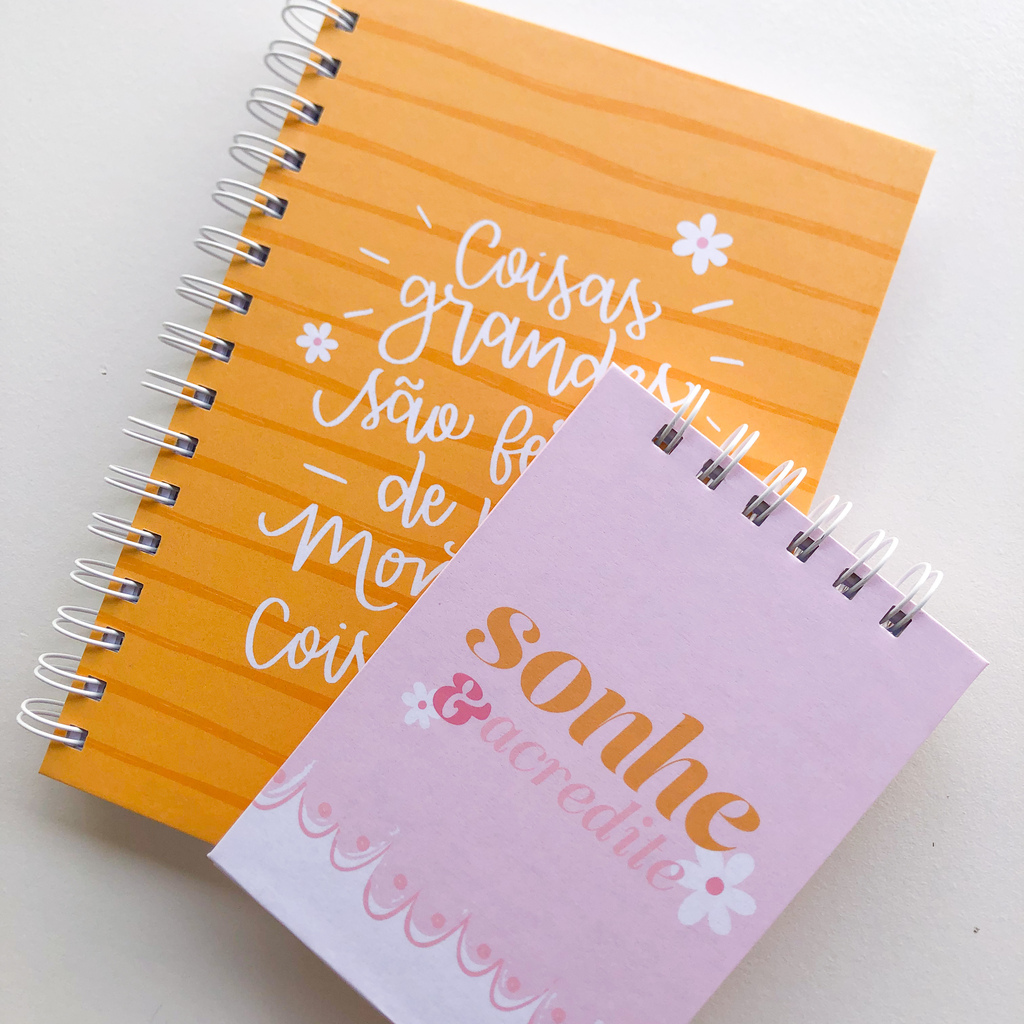 Coisas
grandes
são
de
Cois
sonhe
& acredite